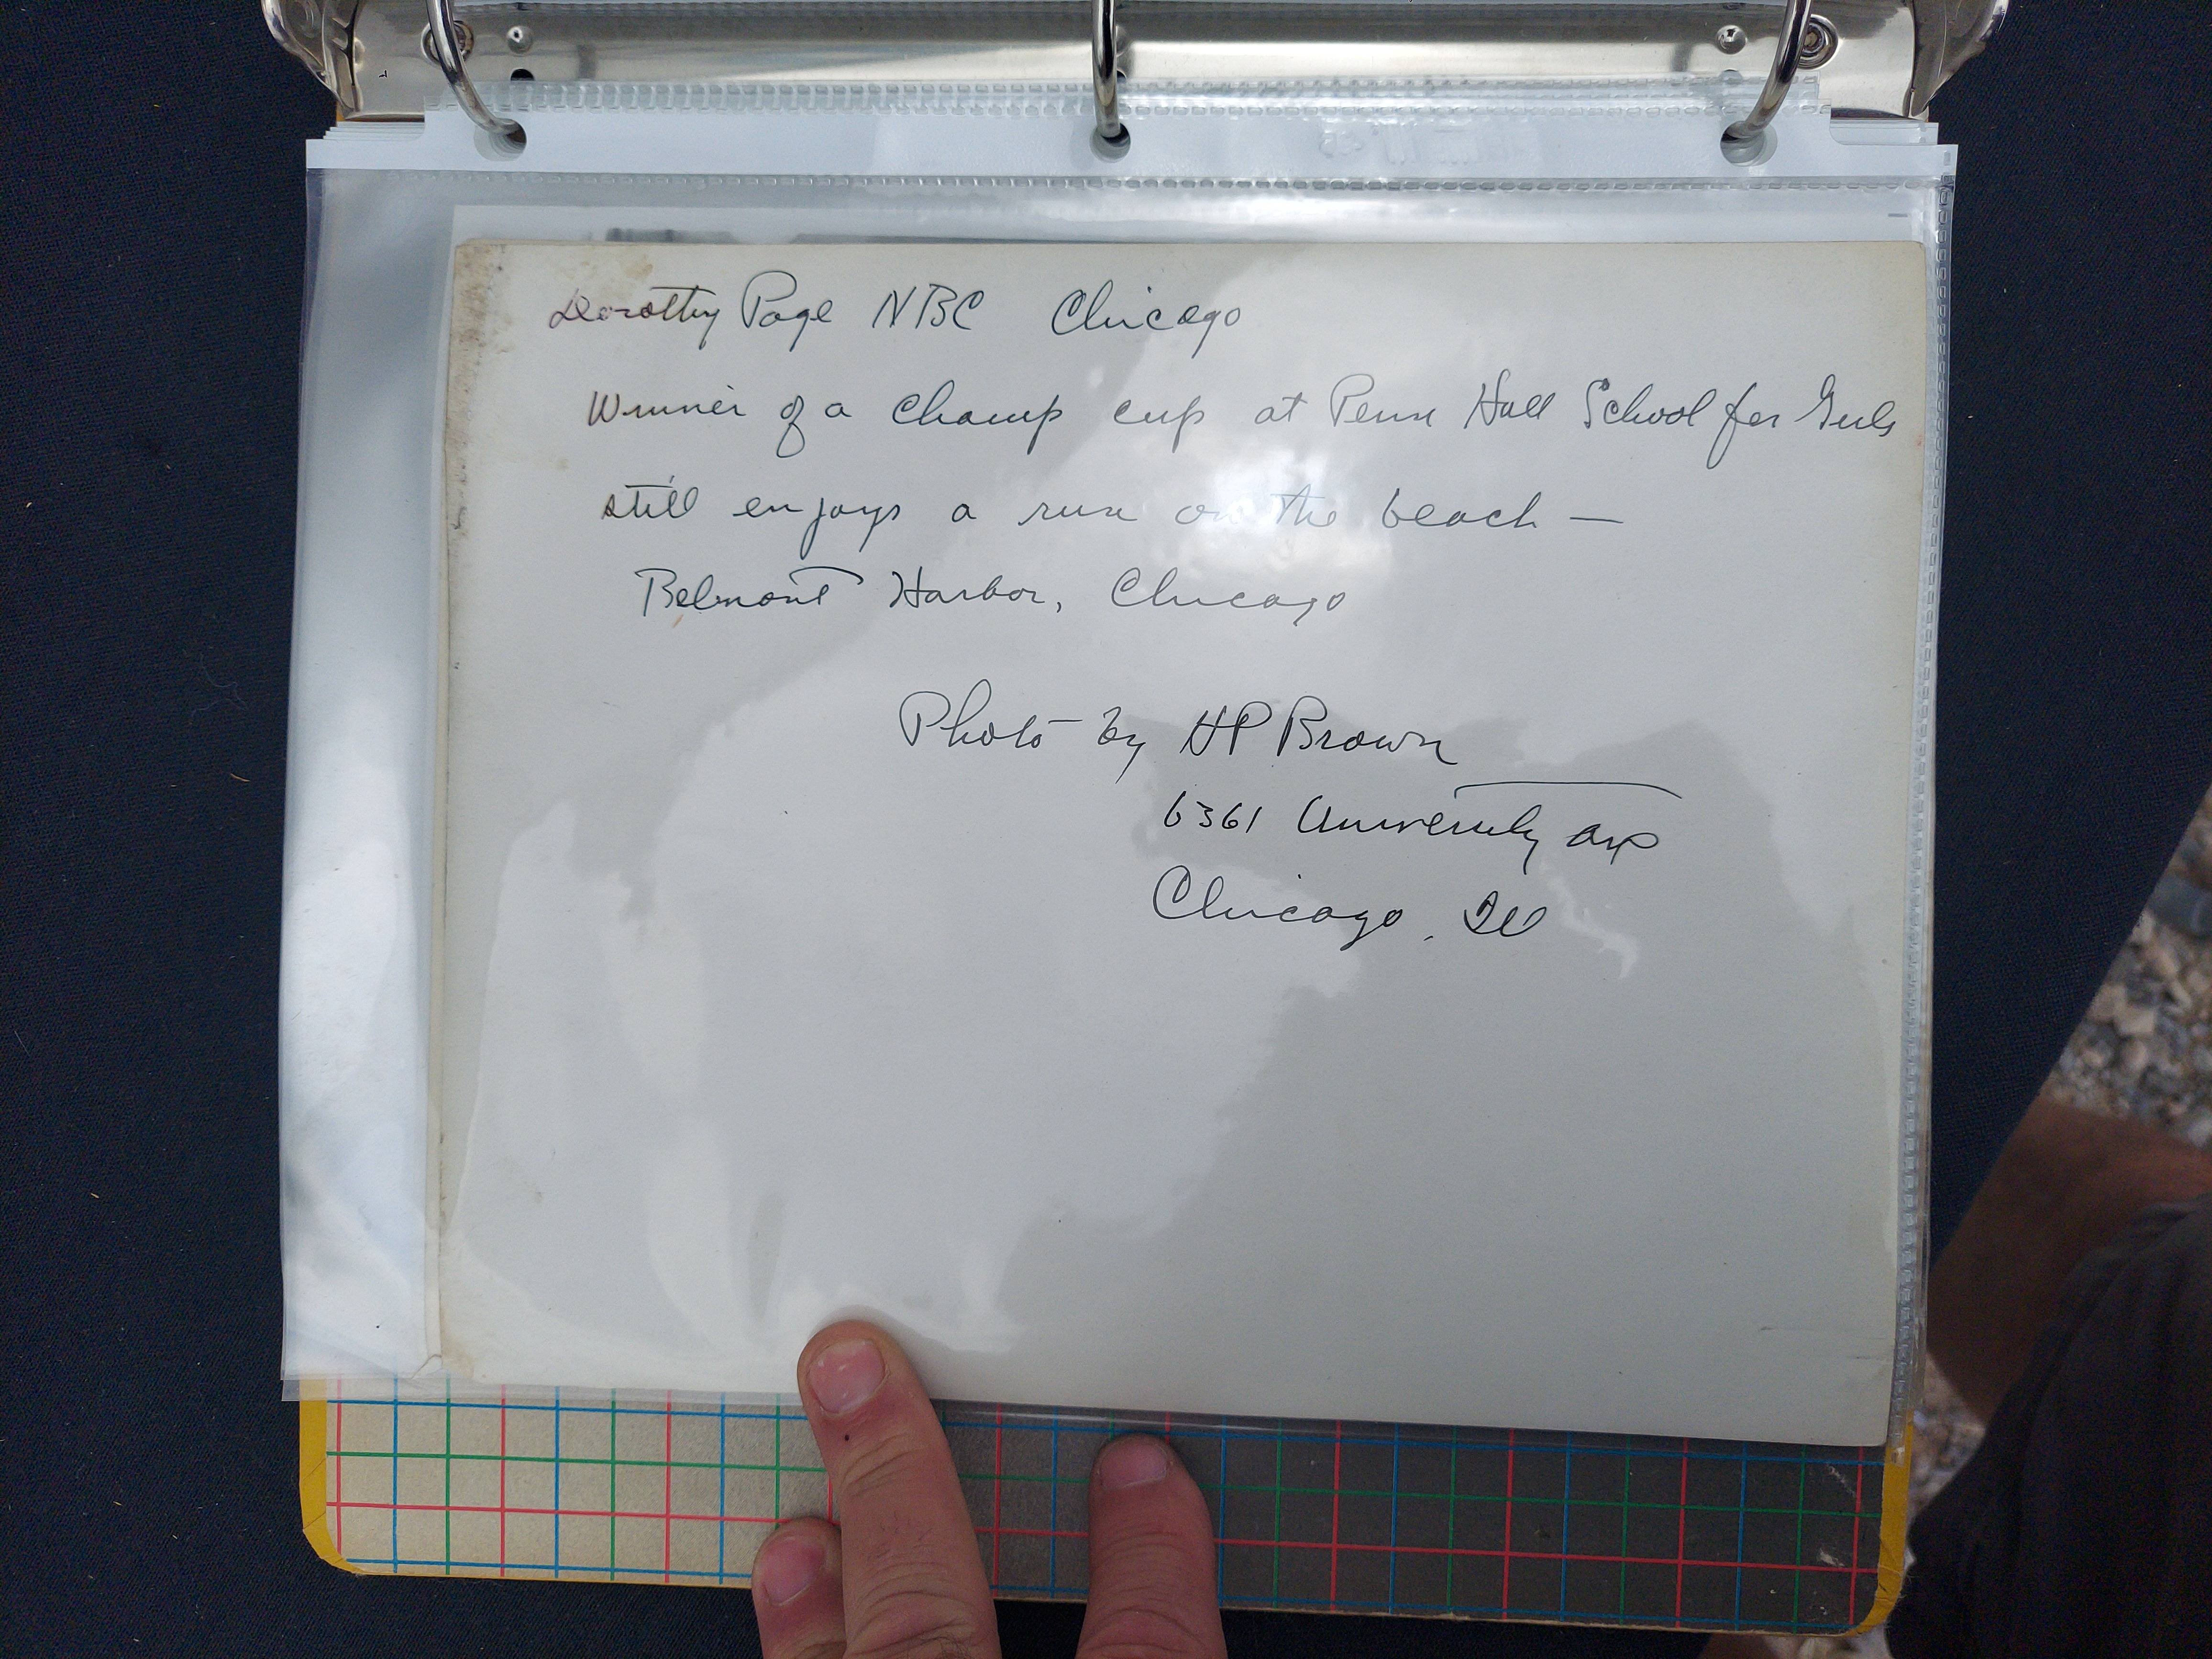 Dorothy Page NBC Chicago
Winner of a champ cup at Penn Hall School for Girls
still enjoys a run on the beach —
Belmont Harbor, Chicago
Photo by HP Brown
6361 University Ave
Chicago, Ill